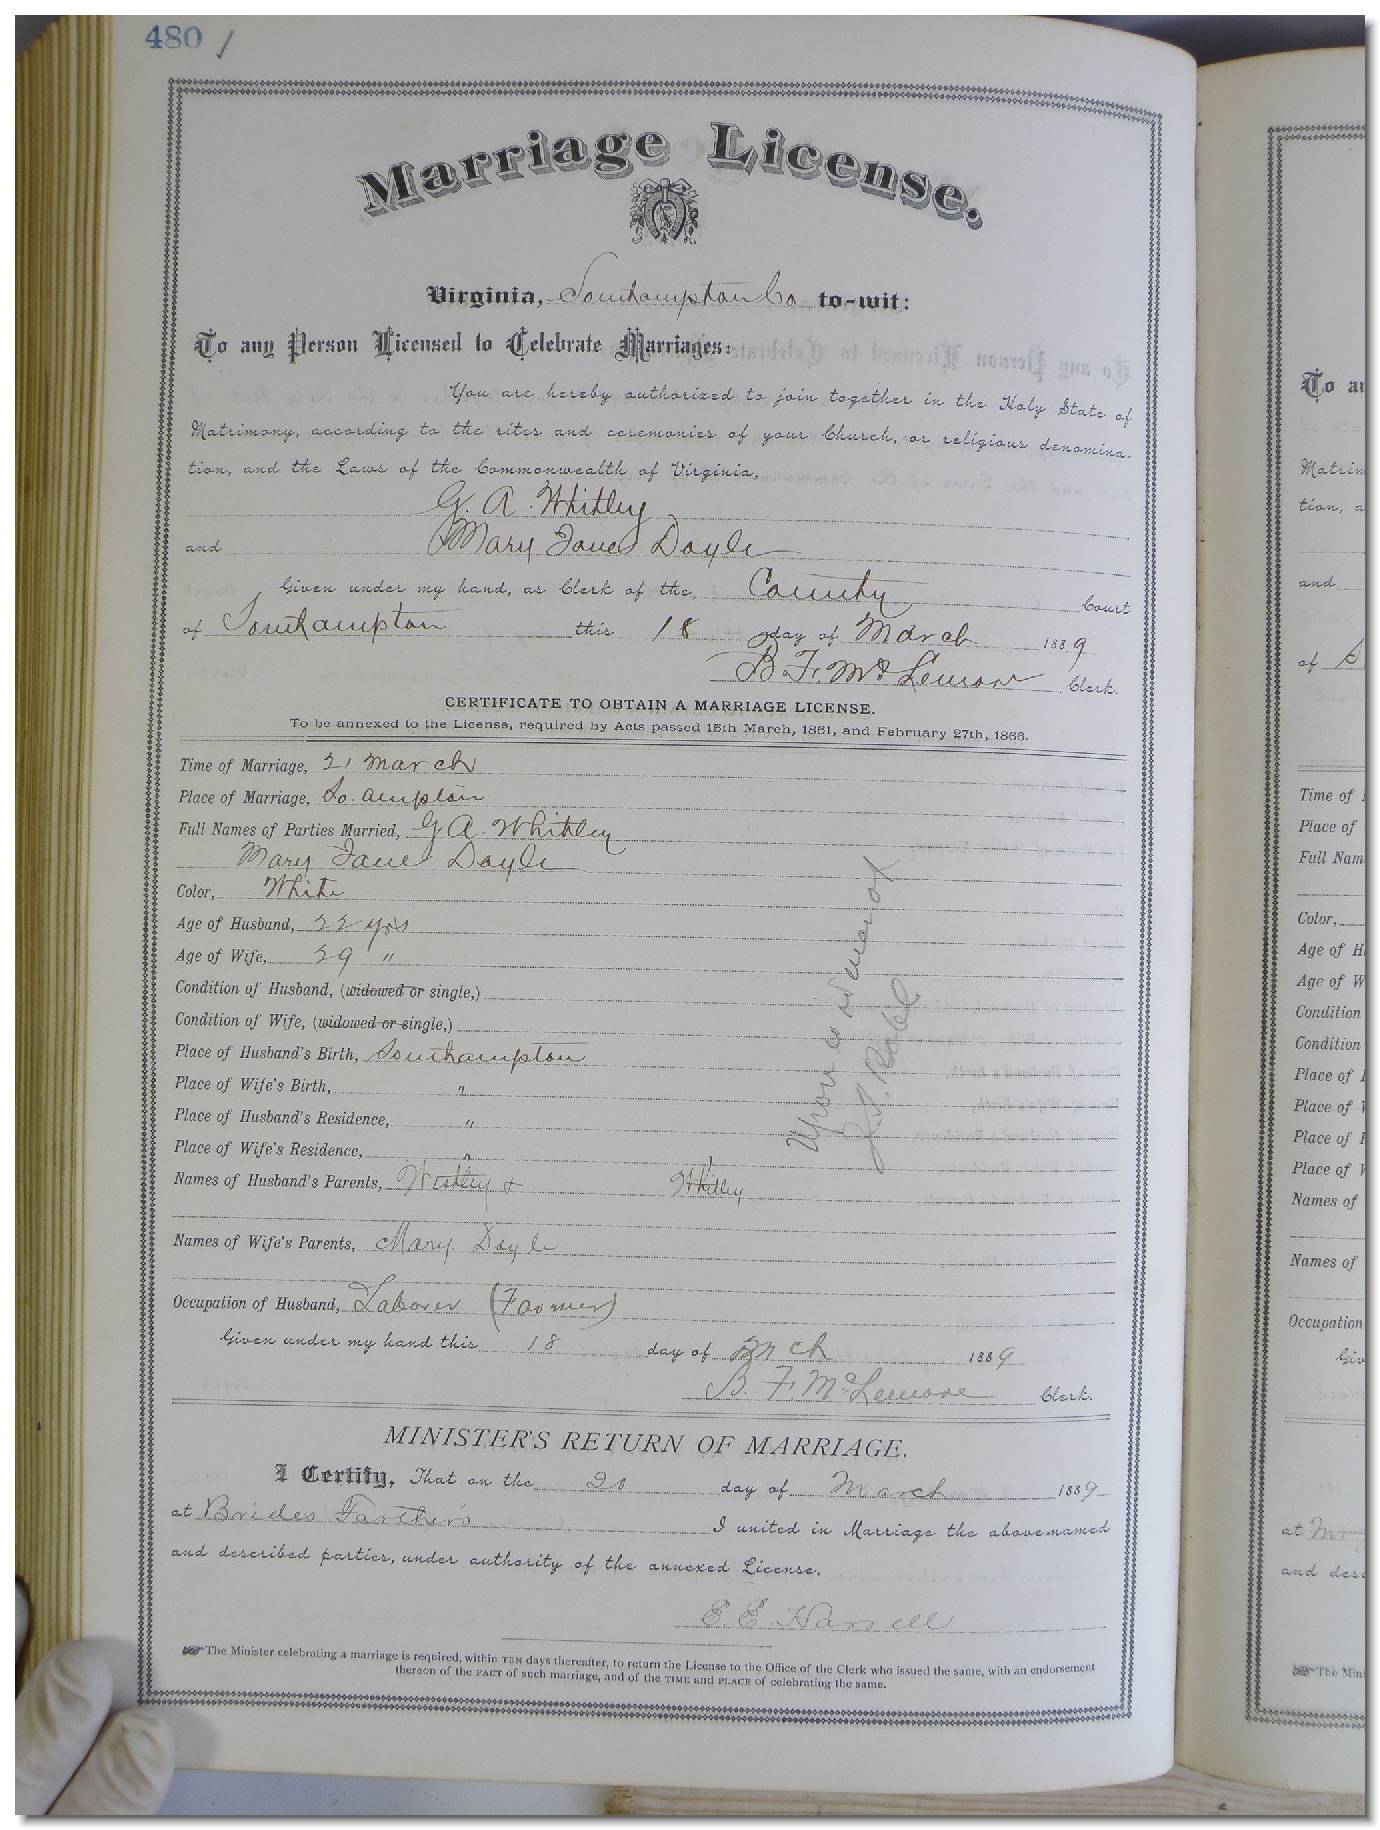 480
Marriage License.
Virginia, Southampton Co to-wit:
To any Person Licensed to Celebrate Marriages:
You are hereby authorized to join together in the Holy State of
Matrimony, according to the rites and ceremonies of your Church, or religious denomina-
tion, and the Laws of the Commonwealth of Virginia,
G. A. Whitley
and Mary Jane Doyle
Given under my hand, as Clerk of the County Court
of Southampton this 18 day of March 1889
B. F. McLemore Clerk.
CERTIFICATE TO OBTAIN A MARRIAGE LICENSE.
To be annexed to the License, required by Acts passed 15th March, 1861, and February 27th, 1866.
Time of Marriage, 21 March
Place of Marriage, So. ampton
Full Names of Parties Married, G A. Whitley
Mary Jane Doyle
Color, White
Age of Husband, 22 yrs
Age of Wife, 29 "
Condition of Husband, (widowed or single,)
Condition of Wife, (widowed or single,)
Place of Husband's Birth, Southampton
Place of Wife's Birth, "
Place of Husband's Residence, "
Place of Wife's Residence, "
Names of Husband's Parents, & Whitley
Names of Wife's Parents, Mary Doyle
Occupation of Husband, Laborer (Farmer)
Given under my hand this 18 day of Mch 1889
B. F. McLemore Clerk.
Upon
MINISTER'S RETURN OF MARRIAGE.
I Certify, That on the day of March 1889
at Brides Farthers I united in Marriage the above-named
and described parties, under authority of the annexed License.
E. E. Harrell
The Minister celebrating a marriage is required, within TEN days thereafter, to return the License to the Office of the Clerk who issued the same, with an endorsement
thereon of the FACT of such marriage, and of the TIME and PLACE of celebrating the same.
To
Matrim
tion, a
and
of S
Time of
Place of
Full Nam
Color,
Age of H
Age of W
Condition
Condition
Place of
Place of
Place of
Place of
Names of
Names of
Occupation
Giv
at
and desc
The Min